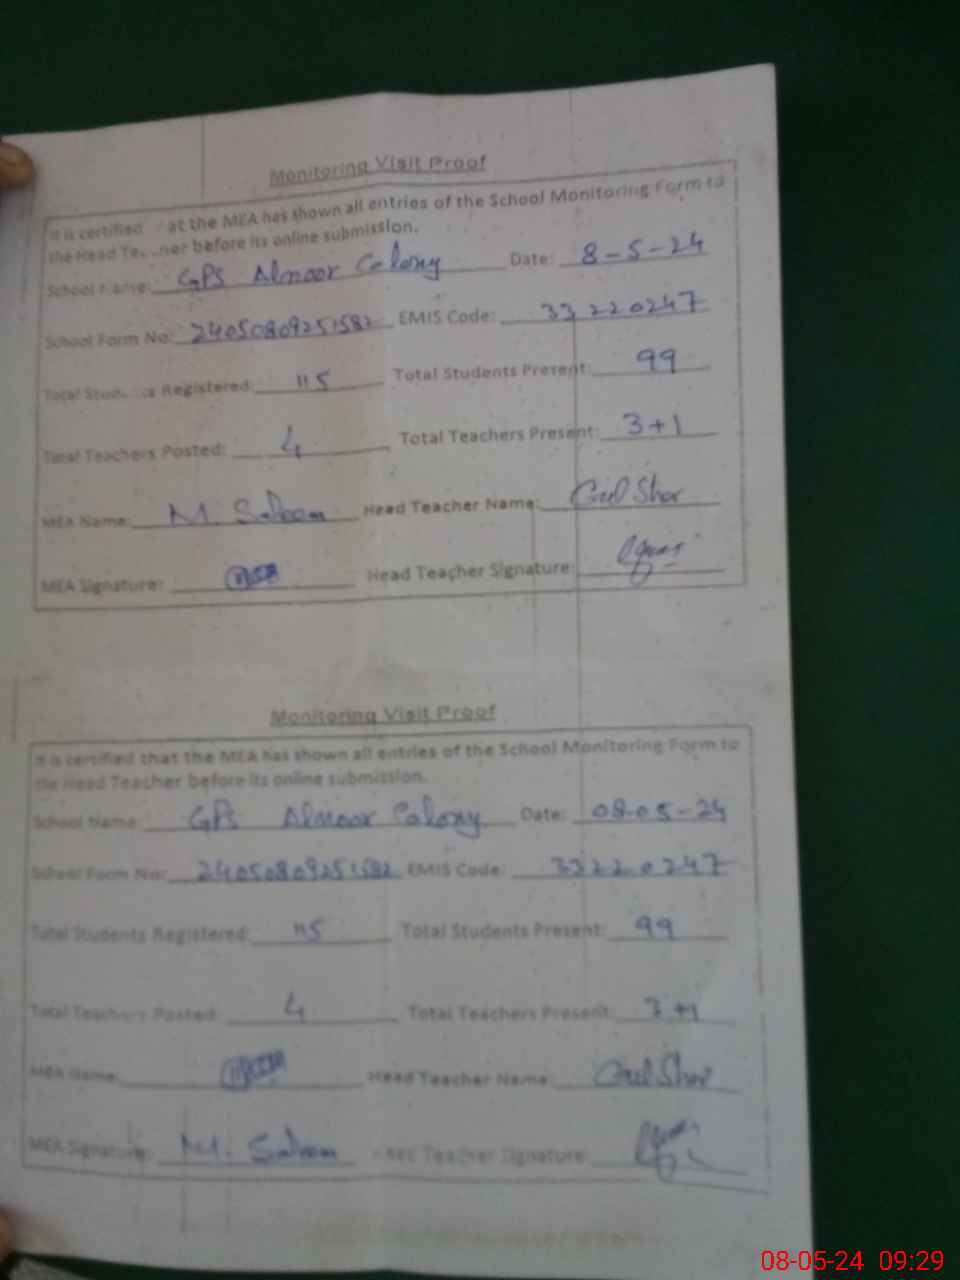 Monitoring Visit Proof
It is certified at the MEA has shown all entries of the School Monitoring Form to
the Head Te...ner before its online submission.
School Name: GPS Alnoor Colony Date: 8-5-24
School Form No: 24050809251582 EMIS Code: 33220247
Total Students Registered: 115 Total Students Present: 99
Total Teachers Posted: 4 Total Teachers Present: 3+1
MEA Name: M. Saleem Head Teacher Name: Gul Sher
MEA Signature: Head Teacher Signature:
Monitoring Visit Proof
It is certified that the MEA has shown all entries of the School Monitoring Form to
the Head Teacher before its online submission.
School Name: GPS Alnoor Colony Date: 08-05-24
School Form No: 24050809251582 EMIS Code: 33220247
Total Students Registered: 115 Total Students Present: 99
Total Teachers Posted: 4 Total Teachers Present: 3+1
MEA Name: Head Teacher Name: Gul Sher
MEA Signature: M. Saleem Teacher Signature:
08-05-24 09:29